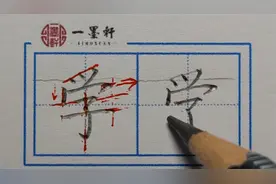 一墨轩
学 学